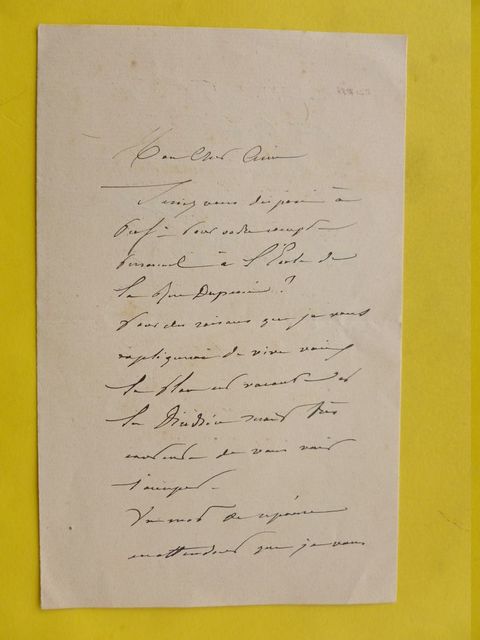 Mon Cher Ami
Seriez vous disposé à
Prof. - pour votre compte
personnel - à l'École de
la Rue Duperré ?
Pour des raisons que je vous
expliquerai de vive voix
la place est vacante et
la Direction serait très
de vous voir
l'occuper -
Un mot de réponse
en attendant que je vous